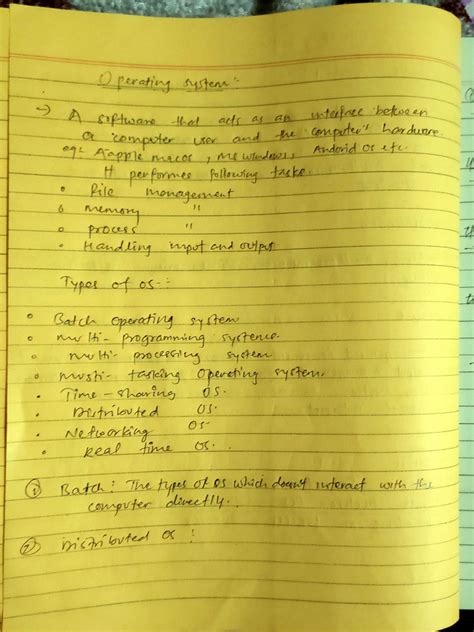 Operating system :-
→ A software that acts as an interface between
a computer user and the computer's hardware.
eg:- Apple macos, Ms windows, Android os etc.
It performes following tasks.
• File management
• memory "
• process "
• Handling input and output
Types of OS :-
• Batch operating system
• multi- programming systems.
• multi- processing system
• multi- tasking operating system.
• Time-sharing OS.
• Distributed OS.
• Networking OS
• Real time OS.
① Batch : The types of OS which doesn't interact with the
computer directly.
② Distributed OS :